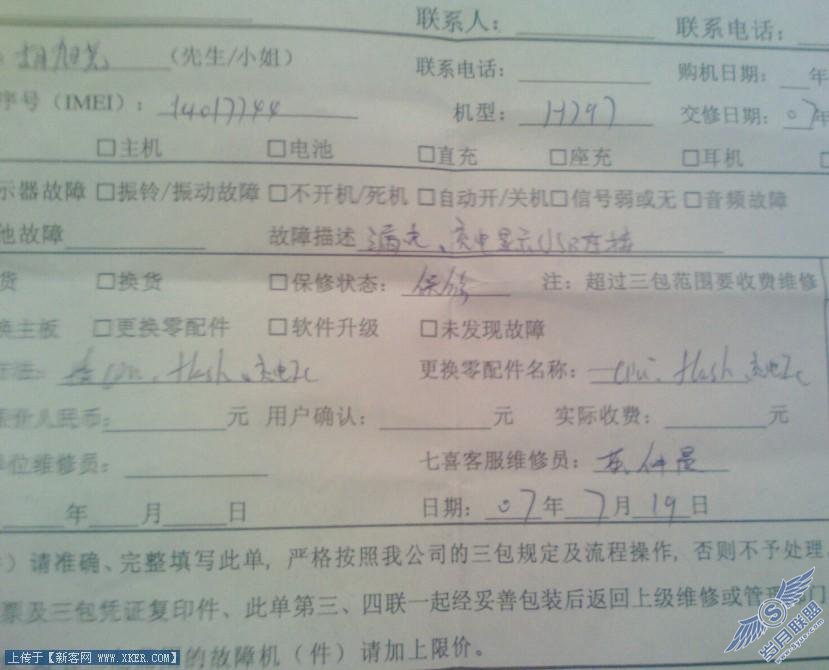 联系人： 联系电话：
（先生/小姐） 联系电话： 购机日期： 年
序号（IMEI）：14017744 机型：H797 交修日期：07年
□主机 □电池 □直充 □座充 □耳机
示器故障 □振铃/振动故障 □不开机/死机 □自动开/关机 □信号弱或无 □音频故障
他故障 故障描述 漏电、充电显示USB连接
货 □换货 □保修状态：保修 注：超过三包范围要收费维修
换主板 □更换零配件 □软件升级 □未发现故障
方法： cpu、flash、充电IC 更换零配件名称： cpu、flash、充电IC
人民币： 元 用户确认： 元 实际收费： 元
单位维修员： 七喜客服维修员：
年 月 日 日期：07年7月19日
）请准确、完整填写此单，严格按照我公司的三包规定及流程操作，否则不予处理
票及三包凭证复印件、此单第三、四联一起经妥善包装后返回上级维修或管理部门
的故障机（件）请加上限价。
上传于【新客网 www.XKER.com】
当月联盟